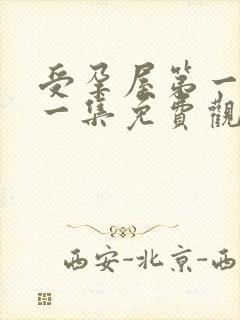 受孕屋第一
一集免費觀
西安-北京-西